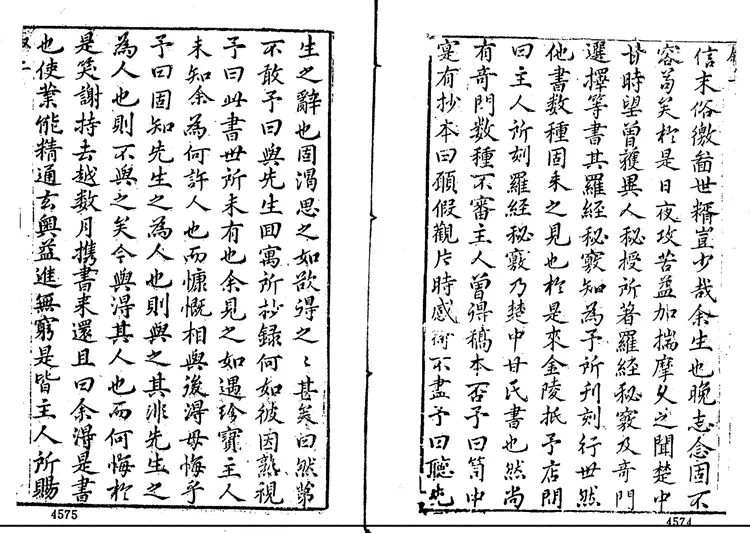 信末俗繳畨世糈豈少哉余生也晚志念固不
容葛矣於是日夜攻苦益加揣摩久之聞楚中
甘時望曾獲異人秘授所著羅經秘竅及奇門
選擇等書其羅經秘竅知為予所刊刻行世然
他書数種固未之見也於是來金陵抵予店問
曰主人所刻羅經秘竅乃楚中甘氏書也然尚
有奇門数種不審主人曾得稿本否予曰笥中
寔有抄本曰願假觀片時感謝不盡予曰聽先
4574
生之辭也固渴思之如欲得之〻甚矣曰然第
不敢予曰與先生回寓所抄録何如彼因熟視
予曰此書世所未有也余見之如遇珍寶主人
未知余為何許人也而慷慨相與後得毋悔乎
予曰固知先生之為人也則與之其非先生之
為人也則不與之矣今與得其人也而何悔於
是笑謝持去越数月携書来還且曰余得是書
也使業能精通玄奧益進無窮是皆主人所賜
4575